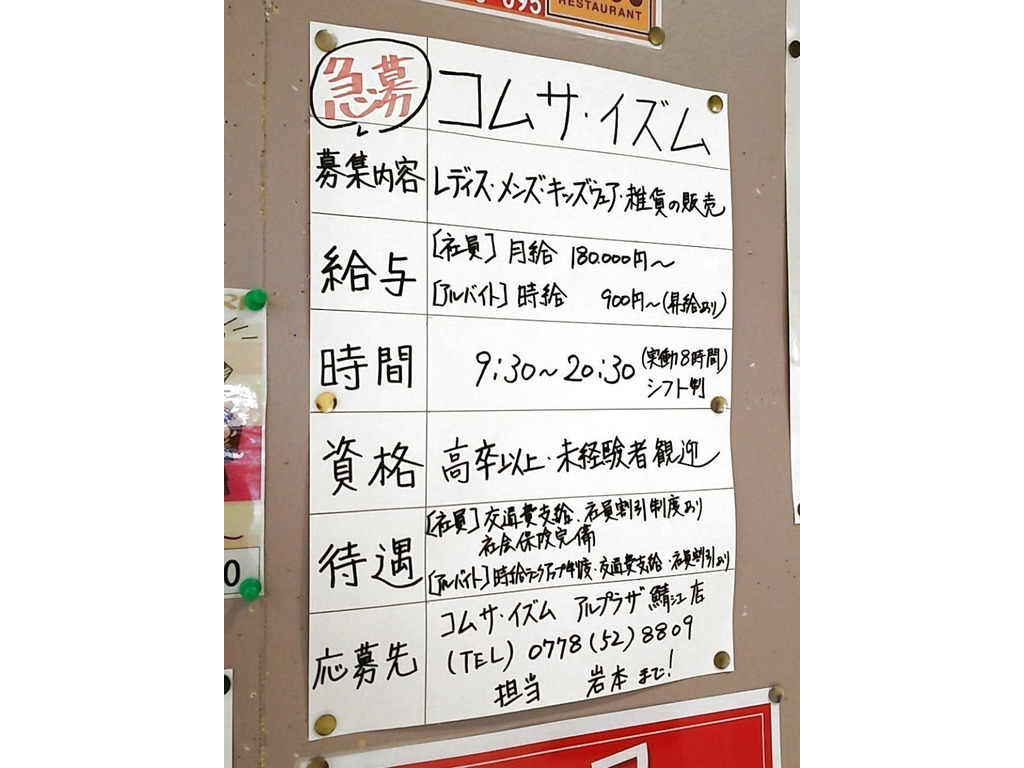 095
RESTAURANT
急募 コムサ・イズム
募集内容 レディス・メンズ・キッズウェア・雑貨の販売
給与 [社員] 月給 180.000円〜
[アルバイト] 時給 900円〜(昇給あり)
時間 9:30〜20:30 (実働8時間)
シフト制
資格 高卒以上・未経験者観迎
待遇 [社員] 交通費支給、社員割引制度あり
社会保険完備
[アルバイト] 時給ランクアップ制度・交通費支給・社員割引あり
応募先 コムサ・イズム アルプラザ鯖江店
(TEL) 0778(52)8809
担当 岩本まで!